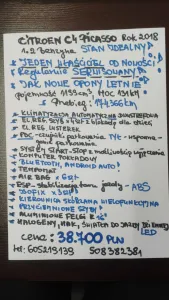 CITROEN C4 PICASSO ROK 2018
1.2 Benzyna STAN IDEALNY
* JEDEN WŁAŚCICIEL OD NOWOŚCI
* Regularnie SERWISOWANY
* JAK NOWE OPONY LETNIE
pojemność 1199 cm³, MOC 131KM
* Przebieg: 144366 km
* KLIMATYZACJA AUTOMATYCZNA DWUSTREFOWA
* EL. REG. SZYB
* EL. REG. LUSTEREK
* PDC-czujniki parkowania TYŁ - wspoma-
ganie parkowania
* SYSTEM START-STOP z możliwością wyłączenia
* KOMPUTER POKŁADOWY
* BLUETOOTH, ANDROID AUTO
* TEMPOMAT
* AIR BAG
* ESP-stabilizacja toru jazdy - ABS
* ISOFIX x 3
* KIEROWNICA SKÓRZANA WIELOFUNKCYJNA
* PRZYCIEMNIONE SZYBY
* ALUMINIOWE FELGI R 16"
* HALOGENY, HAK, ŚWIATŁA DO JAZDY DZIENNEJ
LED
CENA: 38.700 PLN
tel: 605219139 508382381